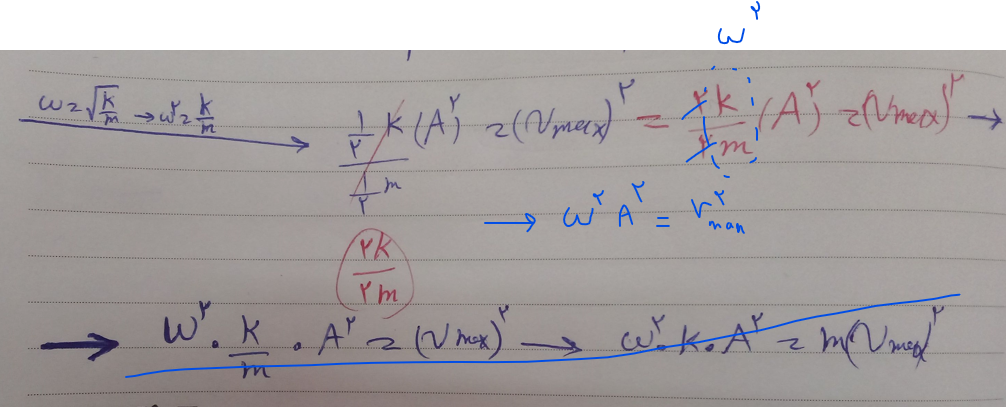 ω^۲
ω = √(k/m) → ω^۲ = k/m → (۱/۲ k (A)^۲)/(۱/۲ m) = (Vmax)^۲ = ۲k/۲m (A)^۲ = (Vmax)^۲ →
→ ω^۲ A^۲ = V^۲max
۲k/۲m
→ ω^۲ . k/m . A^۲ = (Vmax)^۲ → ω^۲ . k . A^۲ = m(Vmax)^۲